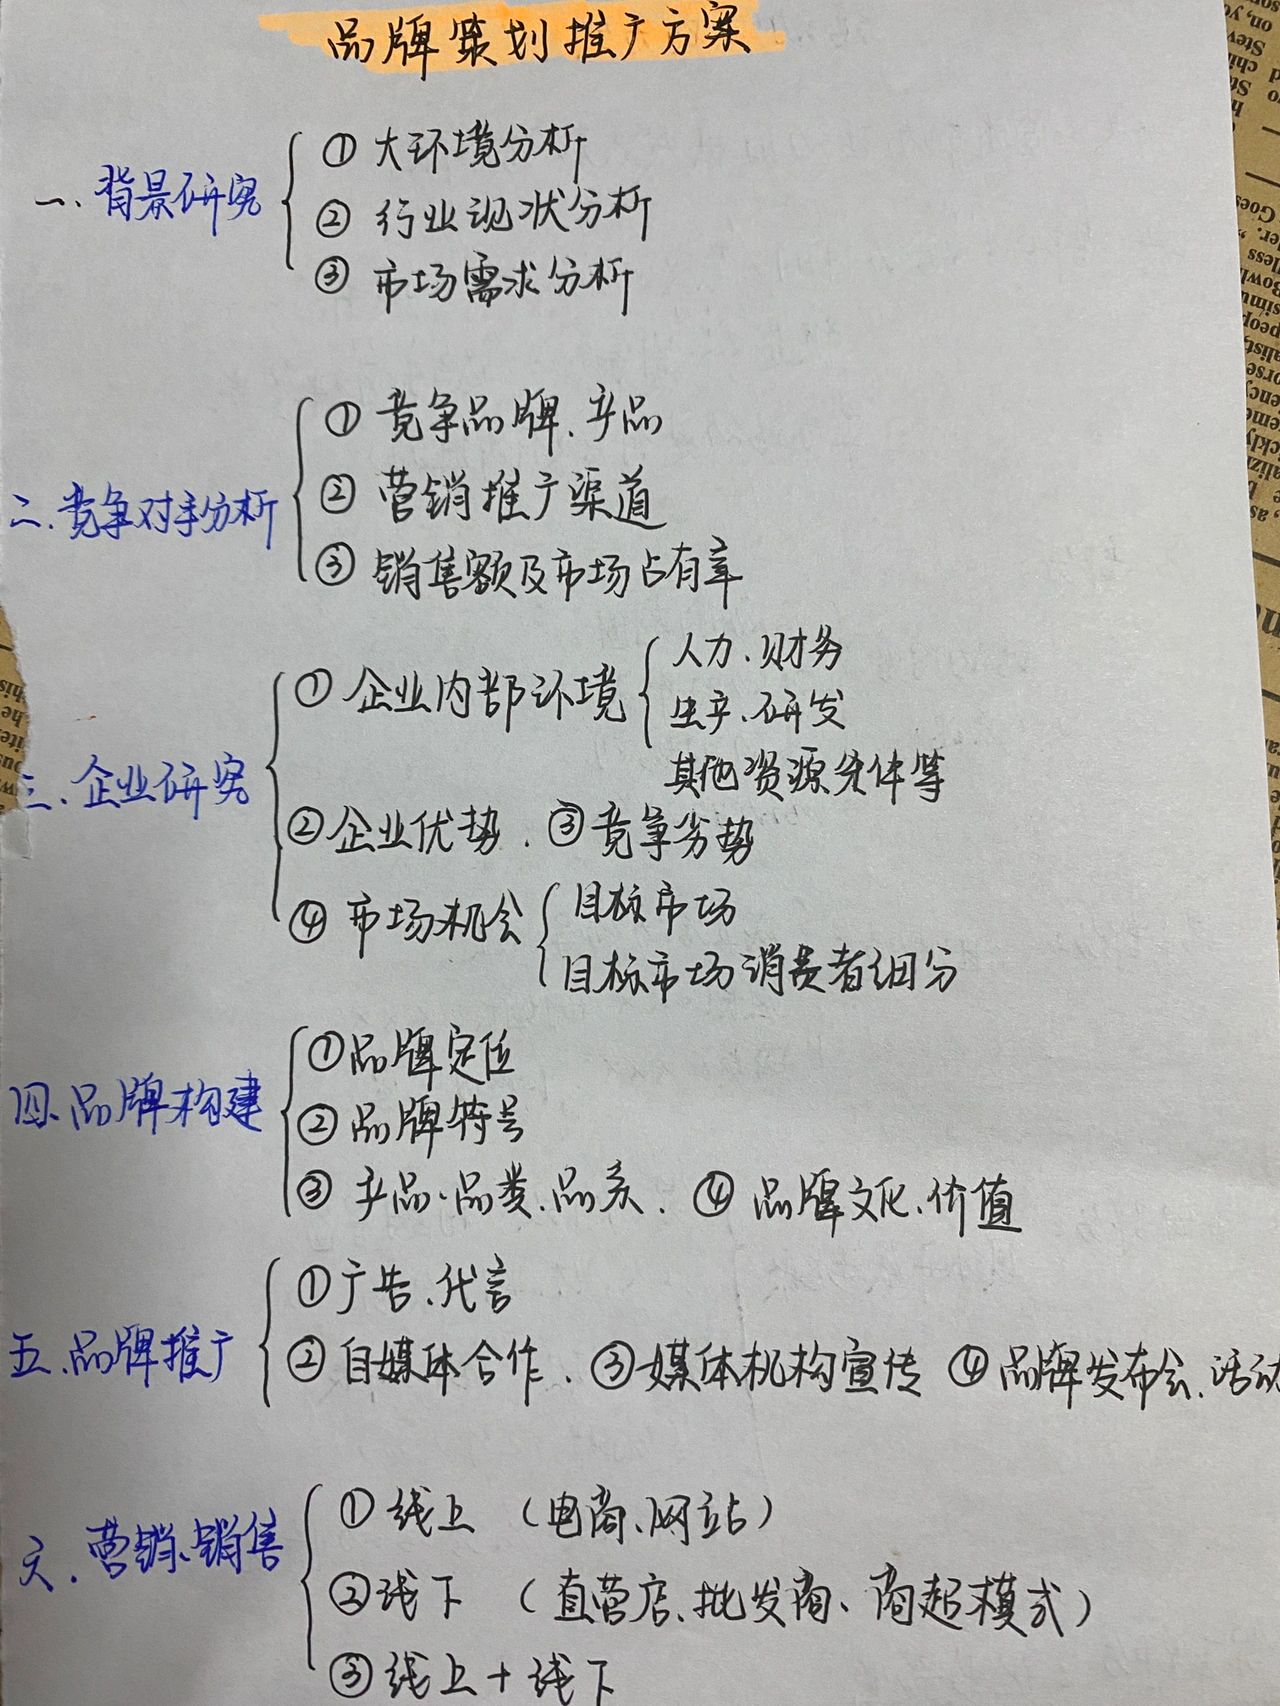 品牌策划推广方案
一、背景研究
① 大环境分析
② 行业现状分析
③ 市场需求分析
二、竞争对手分析
① 竞争品牌、产品
② 营销推广渠道
③ 销售额及市场占有率
三、企业研究
① 企业内部环境
人力、财务
生产、研发
其他资源条件等
② 企业优势、③ 竞争劣势
④ 市场机会
目标市场
目标市场消费者细分
四、品牌构建
① 品牌定位
② 品牌符号
③ 产品、品类、品系、④ 品牌文化、价值
五、品牌推广
① 广告、代言
② 自媒体合作、③ 媒体机构宣传 ④ 品牌发布会、活动
六、营销、销售
① 线上（电商、网站）
② 线下（直营店、批发商、商超模式）
③ 线上+线下